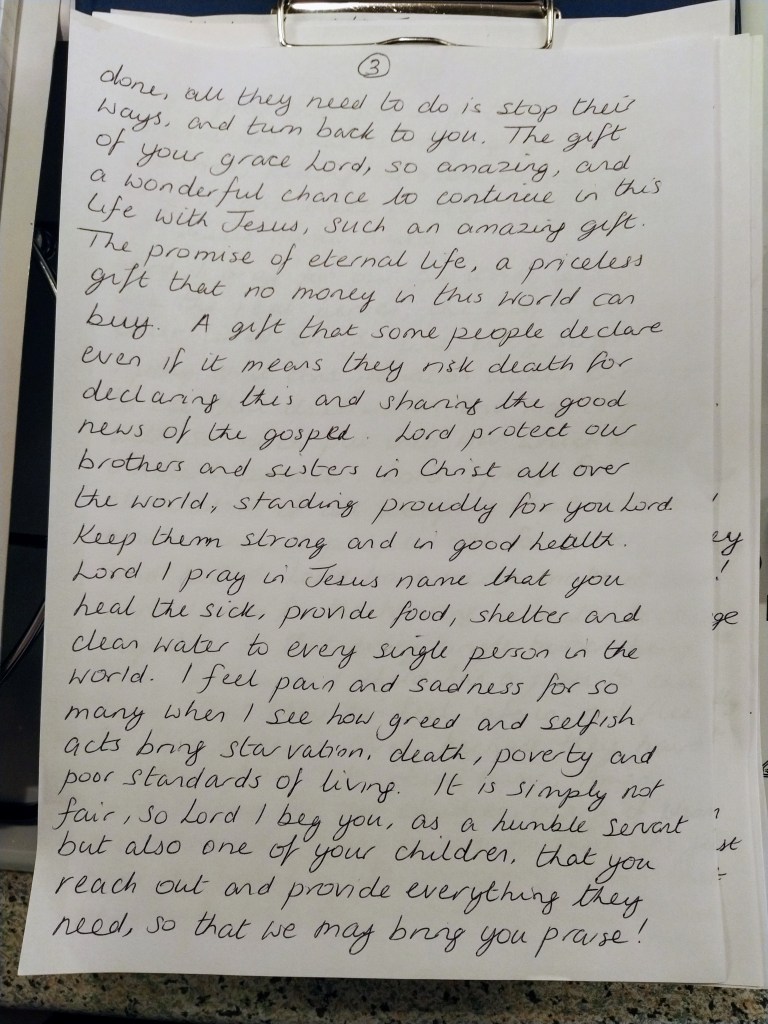 3
done, all they need to do is stop their
ways, and turn back to you. The gift
of your grace Lord, so amazing, and
a wonderful chance to continue in this
life with Jesus, such an amazing gift.
The promise of eternal life, a priceless
gift that no money in this world can
buy. A gift that some people declare
even if it means they risk death for
declaring this and sharing the good
news of the gospel. Lord protect our
brothers and sisters in Christ all over
the world, standing proudly for you Lord.
Keep them strong and in good health.
Lord I pray in Jesus name that you
heal the sick, provide food, shelter and
clean water to every single person in the
world. I feel pain and sadness for so
many when I see how greed and selfish
acts bring starvation, death, poverty and
poor standards of living. It is simply not
fair, so Lord I beg you, as a humble servant
but also one of your children, that you
reach out and provide everything they
need, so that we may bring you praise!